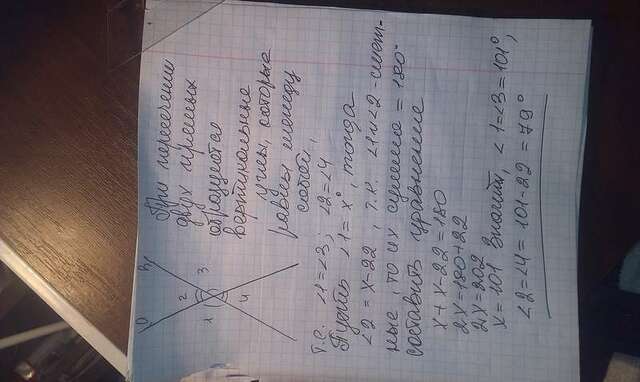 a b
1 2 3 4
При пересечении
двух прямых
образуются
вертикальные
углы, которые
равны между
собой,
т.е. ∠1=∠3; ∠2=∠4
Пусть ∠1=x°, тогда
∠2=x-22, т.к. ∠1 и ∠2 - смеж-
ные, то их сумма = 180°
составить уравнение
x+x-22=180
2x=180+22
2x=202
x=101 значит, ∠1=∠3=101°,
∠2=∠4=101-22=79°